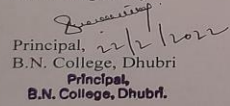 Principal, 22/2/2022
B.N. College, Dhubri
Principal,
B.N. College, Dhubri.